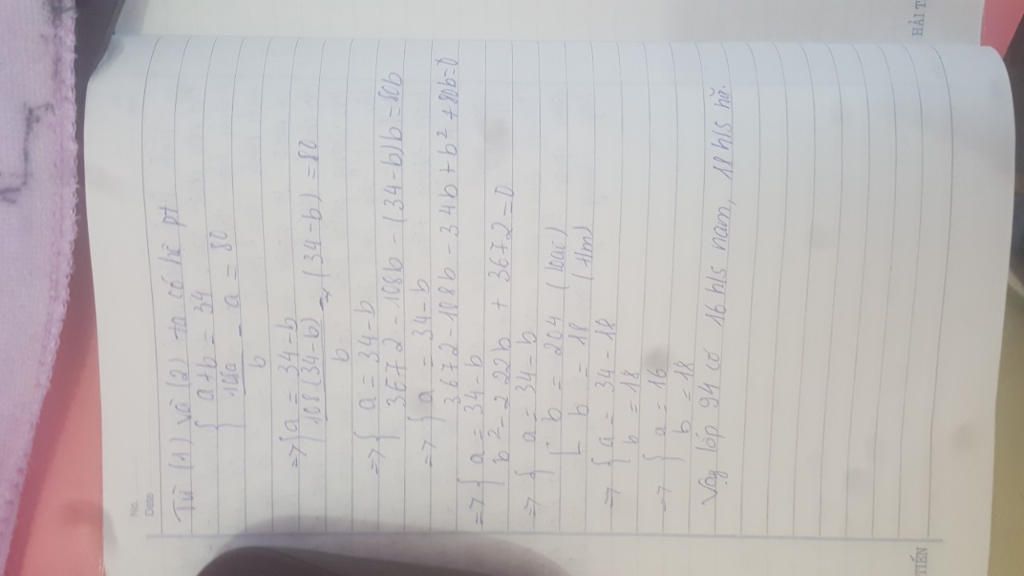 No.
Date
Từ (1) và (2) ta có hệ pt
{ a+b = 34
{ 108a/b - a = 80
=> { a = 34-b
{ 108(34-b)/b - (34-b) = 80
=> { a = 34-b
{ 3672 - 108b - (34-b)b = 80b
=> { a = 34-b
{ 3672 - 108b - 34b + b² + 80b = 0
=> { a = 34-b
{ b² - 222b + 3672 = 0
=> { a = 34-b
{ [ b = 204 (loại)
[ b = 18 (t/m)
=> { a = 34-18
{ b = 18
=> { a = 16
{ b = 18
Vậy lớp 94 có 16 h/s nam, 18 h/s nữ.
TIẾN
HẢI T